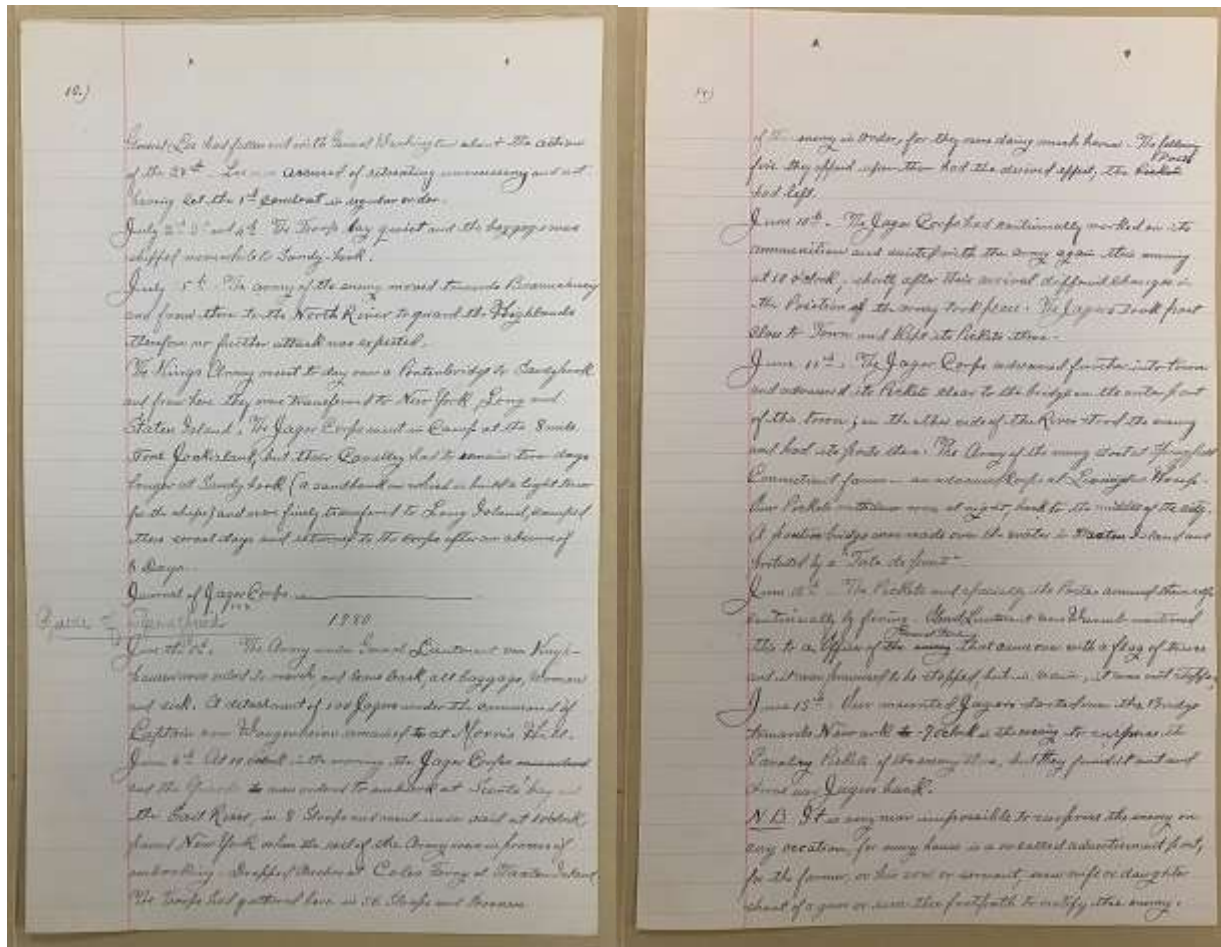 10.)
General Lee had fallen out with General Washington about the action
of the 28th. Lee was accused of retreating unnecessary and not
having let the 1st combat in regular order.
July 2d 3d and 4th The Troops lay quiet and the baggage was
shipped meanwhile to Sandy-hook.
July 5th The army of the enemy moved towards Brunswick
and from there to the North River to guard the Highlands
therefore no further attack was expected.
The Kings Army went to day over a Pontonbridge to Sandyhook
and from here they were transferred to New York, Long and
Staten Island. The Jager Corps went in Camp at the 8 mile
but their Cavallry had to remain two days
longer at Sandy hook (a sandbank on which is built a light tower
for the ships) and were finely transferred to Long Island, camped
there several days and returned to the Corps after an absence of
8 Days.
Journal of Jager Corps.
1780
June The Army under General Lieutenant von Knyp-
hausen was ordered to march, and leave back, all baggage, Women
and sick. A detachment of 100 Jagers under the command of
Captain von Wangenheim remained at Morris Hill.
June 6th At 10 oclock in the morning the Jager Corps
and the were ordered to embark at bay on
the East River, in 8 Sloops and went under sail at oclock
passed New York when the rest of the Army was in process of
embarking. Dropped Anchor at Coles Ferry at Staaten Island
The Troops had gathered here in 56 Sloops and
of the enemy in order, for they were doing much harm. The following
fire they opend upon them had the desired effect, the
Posts
had left.
June 10th. The Jager Corps had continually worked on its
ammunition and united with the army again this evening
at 10 o'clock, shortly after their arrival different changes in
the Position of the army took place. The Jagers took front
close to Town and kept its Pickets there.
June 11th. The Jager Corps advanced further into town
and advanced its Pickets clear to the bridge on the outer front
of the town; on the other side of the River stood the enemy
and had its posts there. The Army of the enemy stood at Springfield
Connecticut farms - an advance Korps at Livingston House.
Our Pickets withdrew over at night, back to the middle of the city.
A pontonbridge was made over the water to Staaten Island and
protected by a "Tete de pont"
June 12th. The Pickets and specially its Posts annoyed themselfs
continually by fireing. Gen. Lieutenant von
this to a Officer of the enemy that came over with a flag of truce
and it was promised to be stopped, but in vain, it was not stopped.
June 13th. Our mounted Jagers started over the Bridge
towards Newark 9 oclock in the evening to surprise the
Cavalry Pickets of the enemy there, but they found it out and
drove our Jagers back.
N.B. It is any way impossible to surprise the enemy on
any occasion, for every house is a so called advertisement post,
for the farmer, or his son or servant, even wife or daughter
shoot of a gun or runs the footpath to notify the enemy.